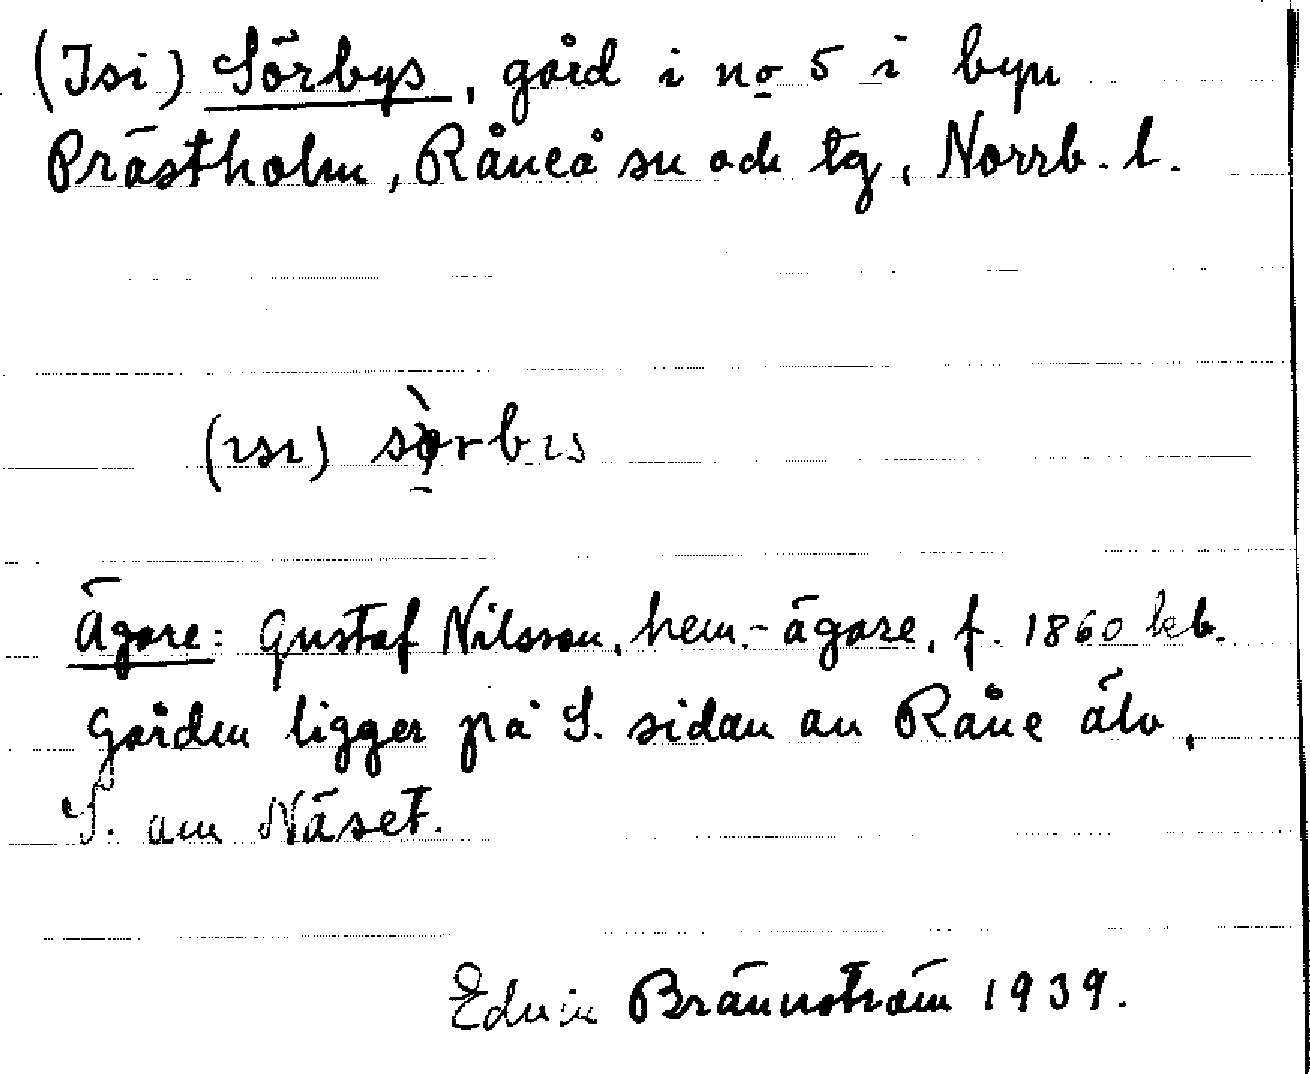 (Isi) Sörbys, gård i no 5 i byn
Prästholm, Råneå sn och tg, Norrb. l.
(ısı) sòrbıs
Ägare: Gustaf Nilsson, hem.-ägare, f. 1860 kb.
Gården ligger på S. sidan av Råne älv,
S. om Näset.
Edvin Brännström 1939.